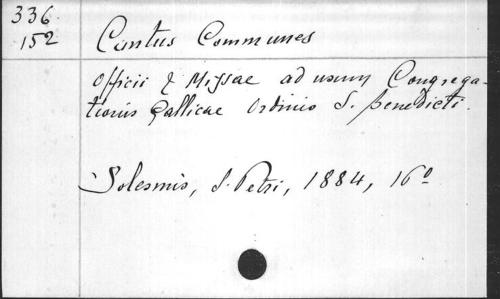 336
152
Cantus Communes
Officii & Missae ad usum Congrega-
tionis Gallicae Ordinis S. Benedicti.
Solesmis, S. Petri, 1884, 16°